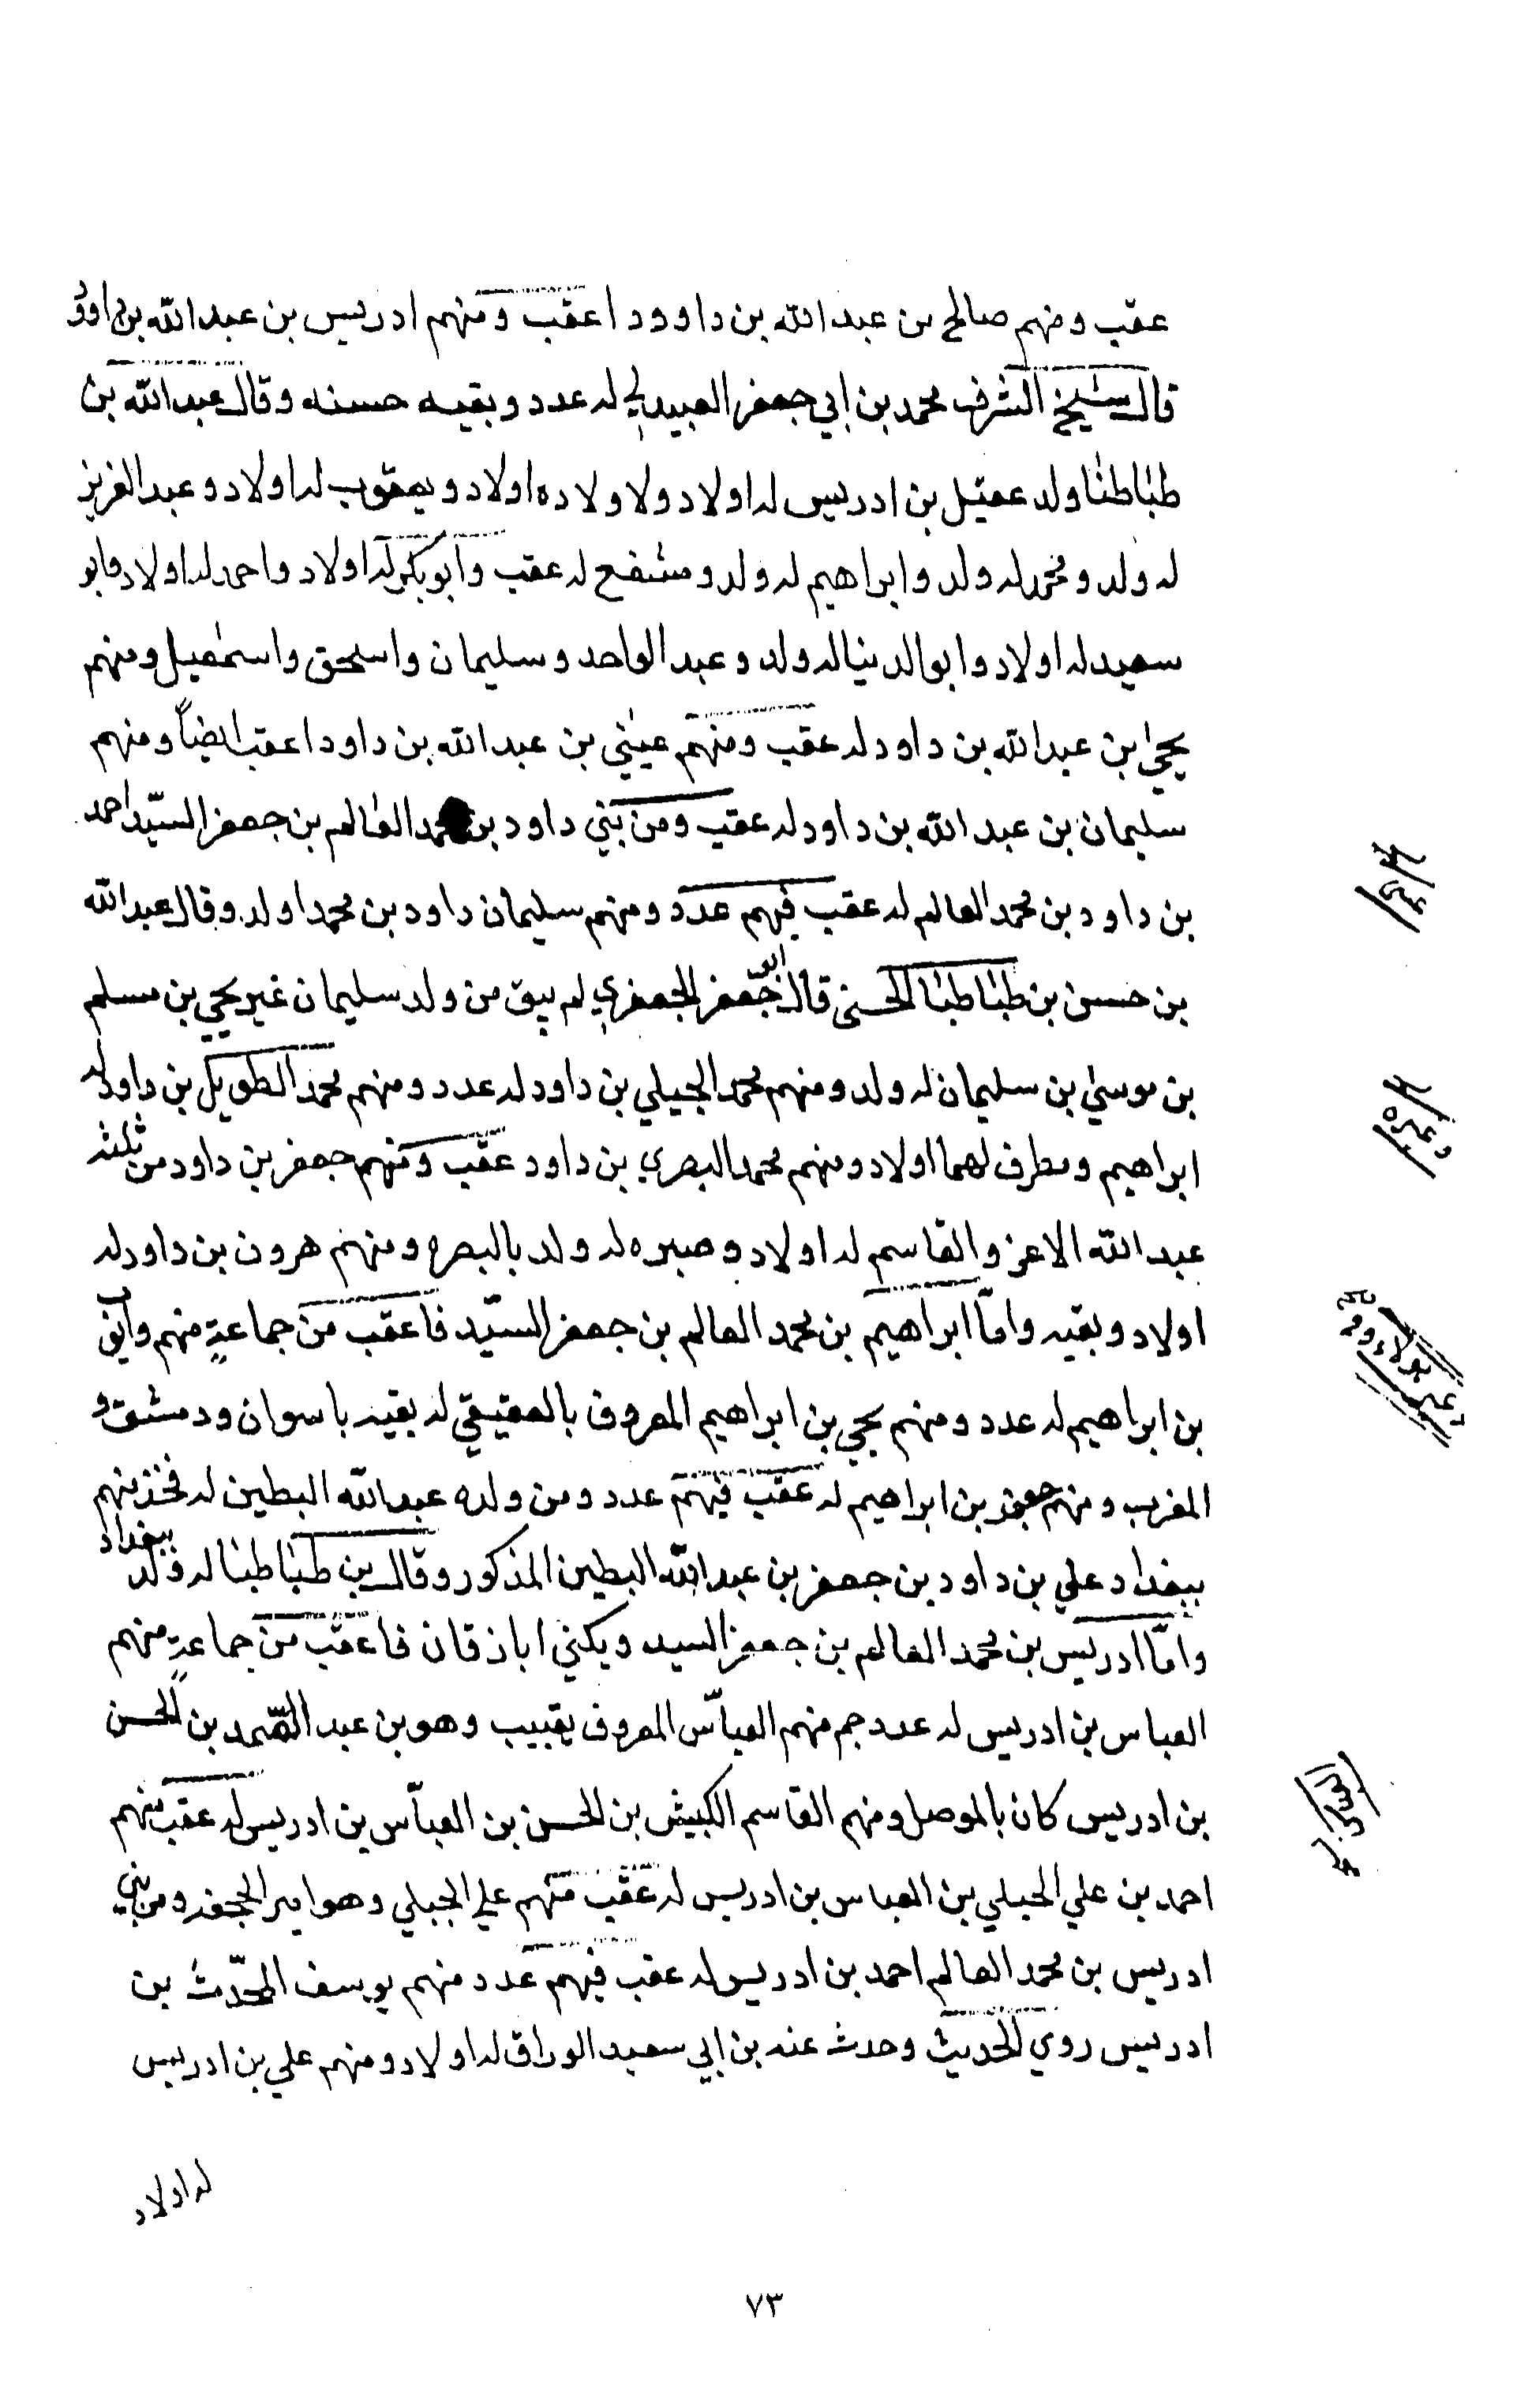 عقب ومنهم صالح بن عبد الله بن داوود اعقب ومنهم ادريس بن عبد الله بن داوود
قال شيخ الشرف محمد بن ابي جعفر العبيدلي له عدد وبقيه حسنه وقال عبد الله بن
طباطبا ولد عقيل بن ادريس له اولاد ولاولاده اولاد ويعقوب له اولاد وعبد العزيز
له ولد ومحمد له ولد وابراهيم له ولد ومشفع له عقب وابو بكر له اولاد واحمد له اولاد وابو
سعيد له اولاد وابو الدنيا له ولد وعبد الواحد وسليمان واسحق واسمعيل ومنهم
يحيى بن عبد الله بن داود له عقب ومنهم عيسي بن عبد الله بن داود اعقب ايضاً ومنهم
سليمان بن عبد الله بن داود له عقب ومن بني داود بن محمد العالم بن جعفر السيّد احمد
بن داود بن محمد العالم له عقب فيهم عدد ومنهم سليمان داود بن محمد اولد وقال عبد الله
بن حسن بن طباطبا الحسني قال ابو جعفر الجعفري لم يبق من ولد سليمان غير يحيي بن مسلم
بن موسي بن سليمان له ولد ومنهم محمد الجبلي بن داود له عدد ومنهم محمد الطويل بن داود له
ابراهيم ومطرف لهما اولاد ومنهم محمد البصري بن داود عقب ومنهم جعفر بن داود من ثلثه
عبد الله الاعز والقاسم له اولاد وصبره له ولد بالبصره ومنهم هرون بن داود له
اولاد وبقيه وامّا ابراهيم بن محمد العالم بن جعفر السيّد فاعقب من جماعةٍ منهم
بن ابراهيم له عدد ومنهم يحيي بن ابراهيم المعروف بالعقيقي له بقيه باسوان ودمشق و
المغرب ومنهم جعفر بن ابراهيم له عقب فيهم عدد ومن ولده عبد الله البطين له فخذ منهم
ببغداد علي بن داود بن جعفر بن عبد الله البطين المذكور وقال بن طباطبا له ولد ببغداد
وامّا ادريس بن محمد العالم بن جعفر السيد ويكني ابا زقان فاعقب من جماعةٍ منهم
العباس بن ادريس له عدد جم منهم العبّاس المعروف بقبيب وهو بن عبد الصّمد بن الحسن
بن ادريس كان بالموصل ومنهم القاسم الكبيش بن الحسن بن العبّاس بن ادريس له عقب منهم
احمد بن علي الجبلي بن العباس بن ادريس له عقب منهم علي الجبلي وهو امير الجحفه ومن بني
ادريس بن محمد العالم احمد بن ادريس له عقب فيهم عدد منهم يوسف المحّدث بن
ادريس روي الحديث وحدث عنه بن ابي سعيد الوراق له اولاد ومنهم علي بن ادريس
له اولاد
٧٣